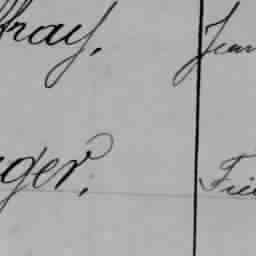 ffray, Jean
ger, Frie